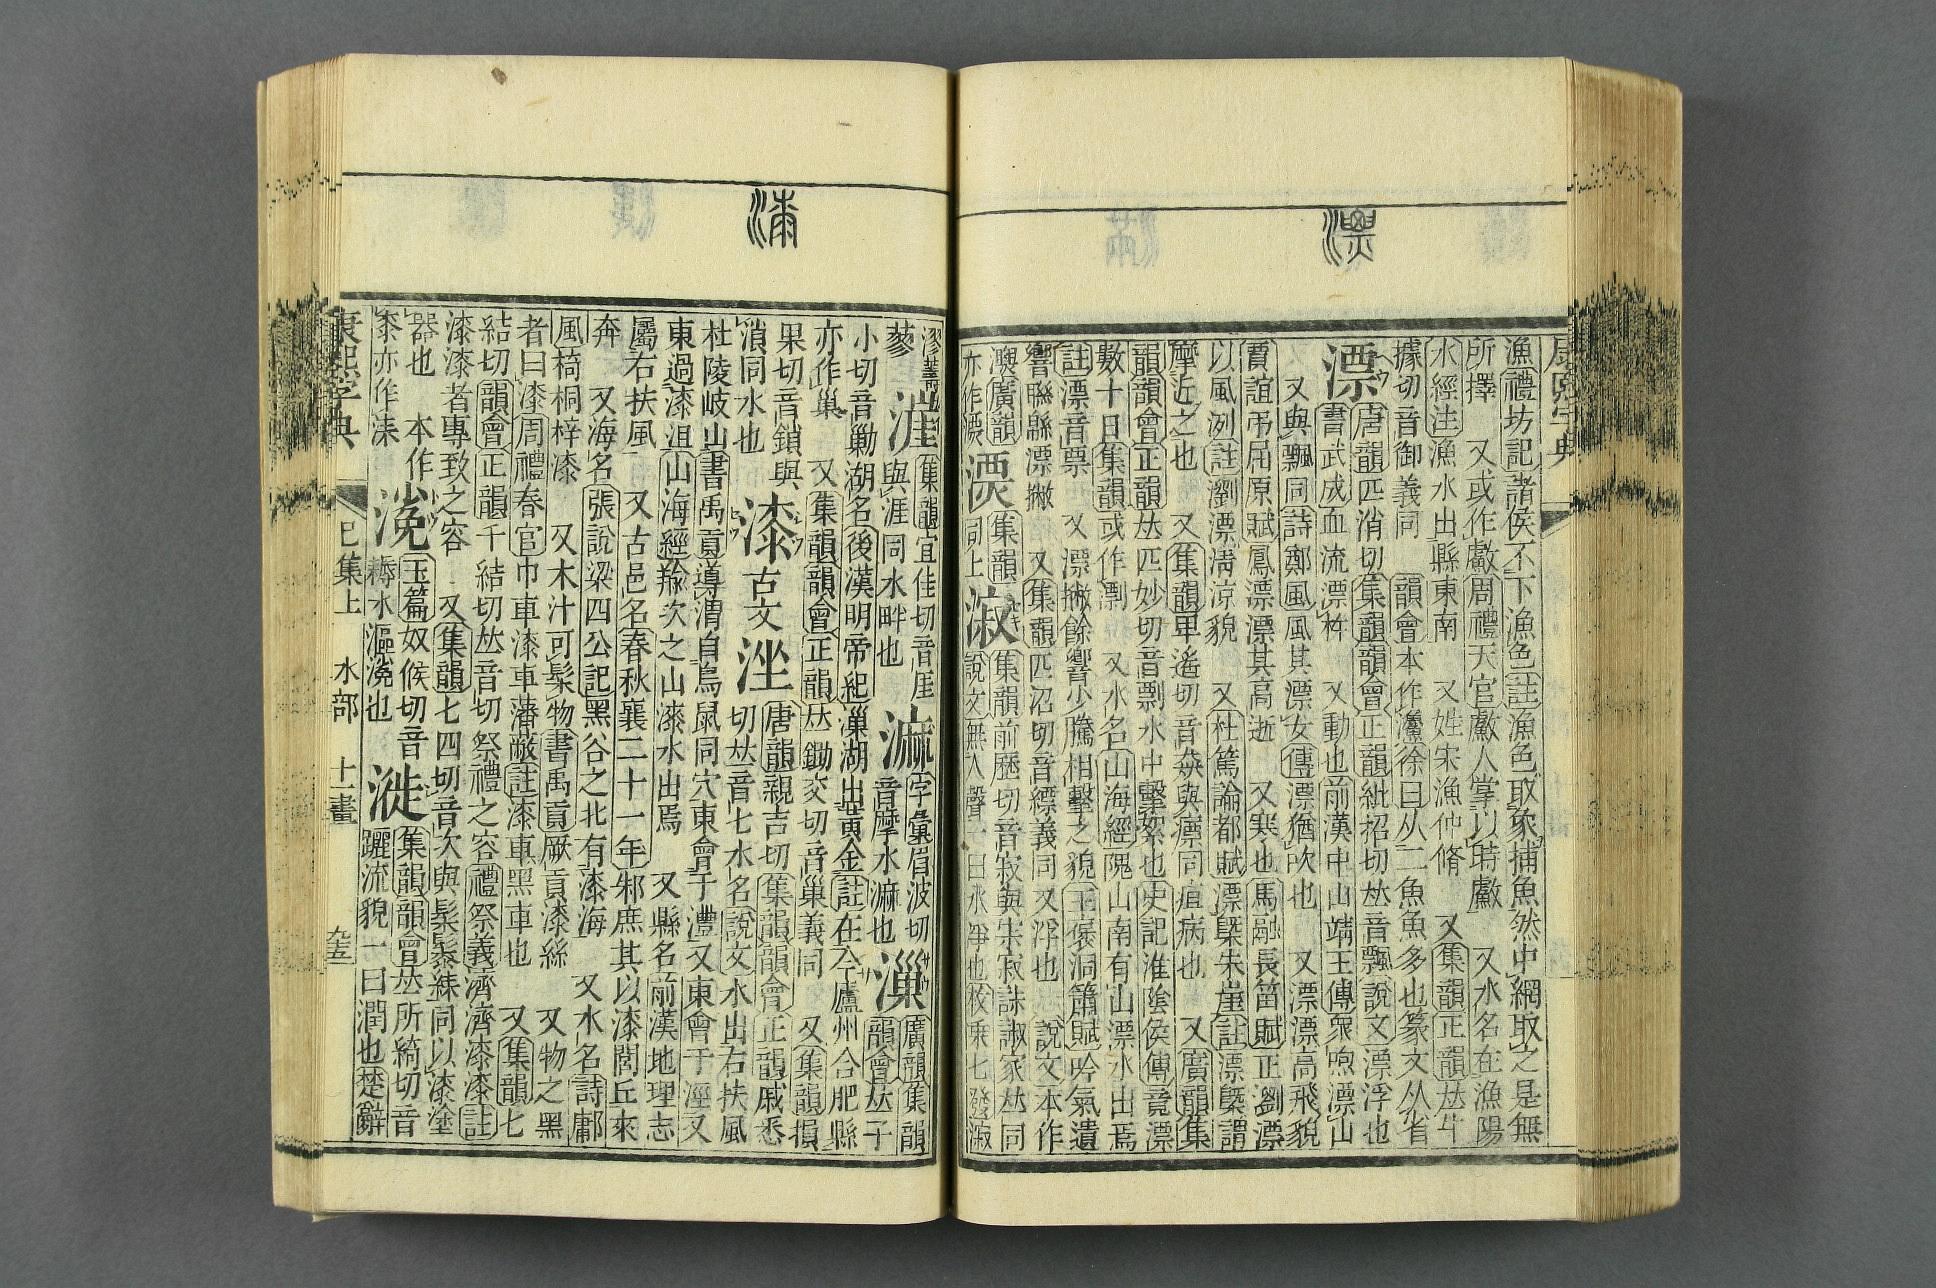 漁禮坊記諸侯不下漁色註漁色取象捕魚然中網取之是無
所擇　又或作䱷周禮天官䱷人掌以時䱷　又水名在漁陽
水經注漁水出縣東南　又姓宋漁仲脩　又集韻正韻𠀤牛
據切音御義同　韻會本作𤅬徐曰从二魚魚多也篆文从省
漂
唐韻匹消切集韻韻會正韻紕招切𠀤音飄說文漂浮也
書武成血流漂杵　又動也前漢中山靖王傳衆喣漂山
又與飄同詩鄭風風其漂女傳漂猶吹也　又漂漂高飛貌
賈誼弔屈原賦鳳漂漂其高逝　又寒也馬融長笛賦正瀏漂
以風冽註瀏漂淸涼貌　又杜篤論都賦漂槩朱崖註漂槩謂
摩近之也　又集韻甲遙切音猋與瘭同疽病也　又廣韻集
韻韻會正韻𠀤匹妙切音剽水中擊絮也史記淮陰侯傳竟漂
數十日集韻或作㵱　又水名山海經隗山南有山漂水出焉
註漂音票　又漂撇餘響少騰相擊之貌王褒洞簫賦吟氣遺
響聯緜漂撇　又集韻匹沼切音縹義同又浮也　說文本作
㵱廣韻亦作漂
㵱
集韻同上
漃
集韻前歷切音寂與宋寂諔𧧼家𠀤同
說文無人聲一曰水凈也枚乘七發漃
漻薵蓼
漄
集韻宜佳切音厓與涯同水畔也
𣻗
字彙眉波切音摩水𣻗也
漅
廣韻集韻韻會𠀤子
小切音勦湖名後漢明帝紀漅湖出黃金註在今廬州合肥縣
亦作巢　又集韻韻會正韻𠀤鋤交切音巢義同　又集韻損
果切音鎖與溑同水也
漆
古文
㘸
唐韻親吉切集韻韻會正韻戚悉切𠀤音七水名說文水出右扶風
杜陵岐山書禹貢導渭自鳥鼠同穴東會于灃又東會于涇又
東過漆沮山海經羭次之山漆水出焉　又縣名前漢地理志
屬右扶風　又古邑名春秋襄二十一年邾庶其以漆閭丘來
奔　又海名張說梁四公記黑谷之北有漆海　又水名詩鄘
風椅桐梓漆　又木汁可髹物書禹貢厥貢漆絲　又物之黑
者曰漆周禮春官巾車漆車藩蔽註漆車黑車也　又集韻七
結切韻會正韻千結切𠀤音切祭禮之容禮祭義濟濟漆漆註
漆漆者專致之容　又集韻七四切音次與髹䰍䋷同以漆塗
器也　本作桼亦作㳍
㴰
玉篇奴侯切音
檽水漚㴰也
漇
集韻韻會𠀤所綺切音
躧流貌一曰潤也楚辭
康熙字典
巳集上　水部　十一畫
九五
康熙字典